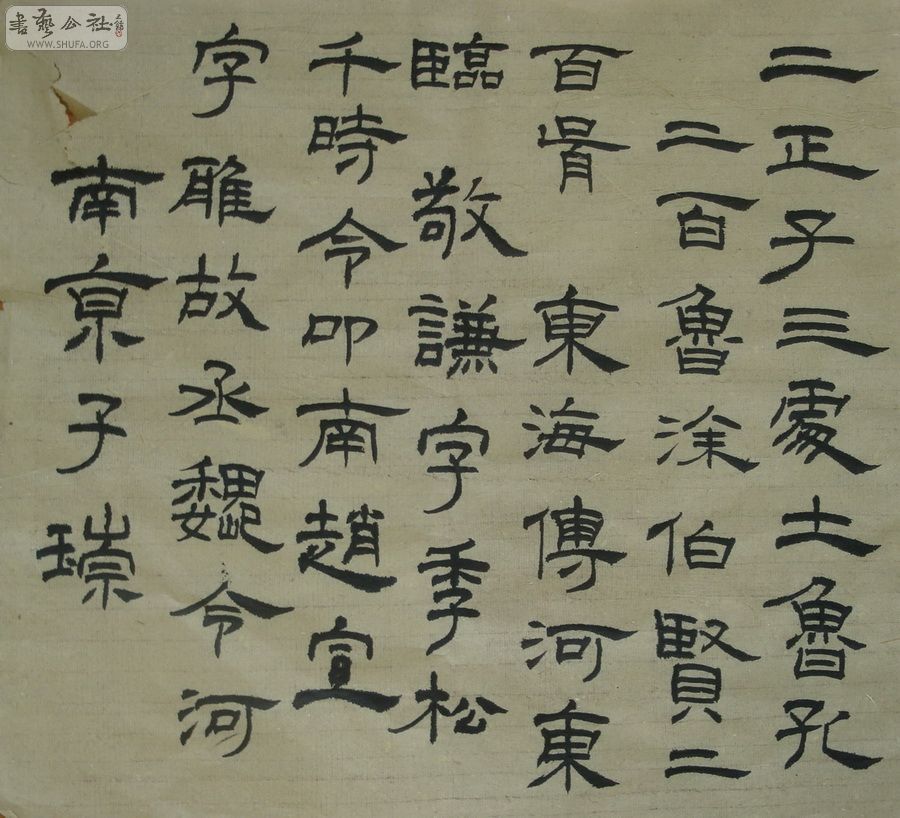 二正子三處土魯孔
二百魯涂伯賢二
百骨東海傅河東
臨敬謙字季松
千時令印南趙宣
字雕故丞魏令河
南京子
書藝公社
WWW.SHUFA.ORG